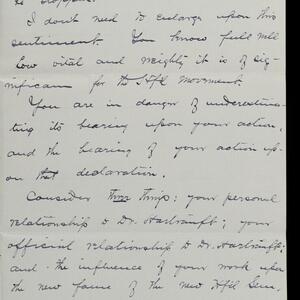 be stopped.
I don't need to enlarge upon this
sentiment. You know full well
how vital and weighty it is of sig-
nificance for the Htfd Movement.
You are in danger of underestima-
ting its bearing upon your action,
and the bearing of your action up-
on that declaration.
Consider three things: your personal
relationship to Dr. Hartranft; your
official relationship to Dr. Hartranft;
and the influence of your work upon
the new fame of the new Htfd Sem.